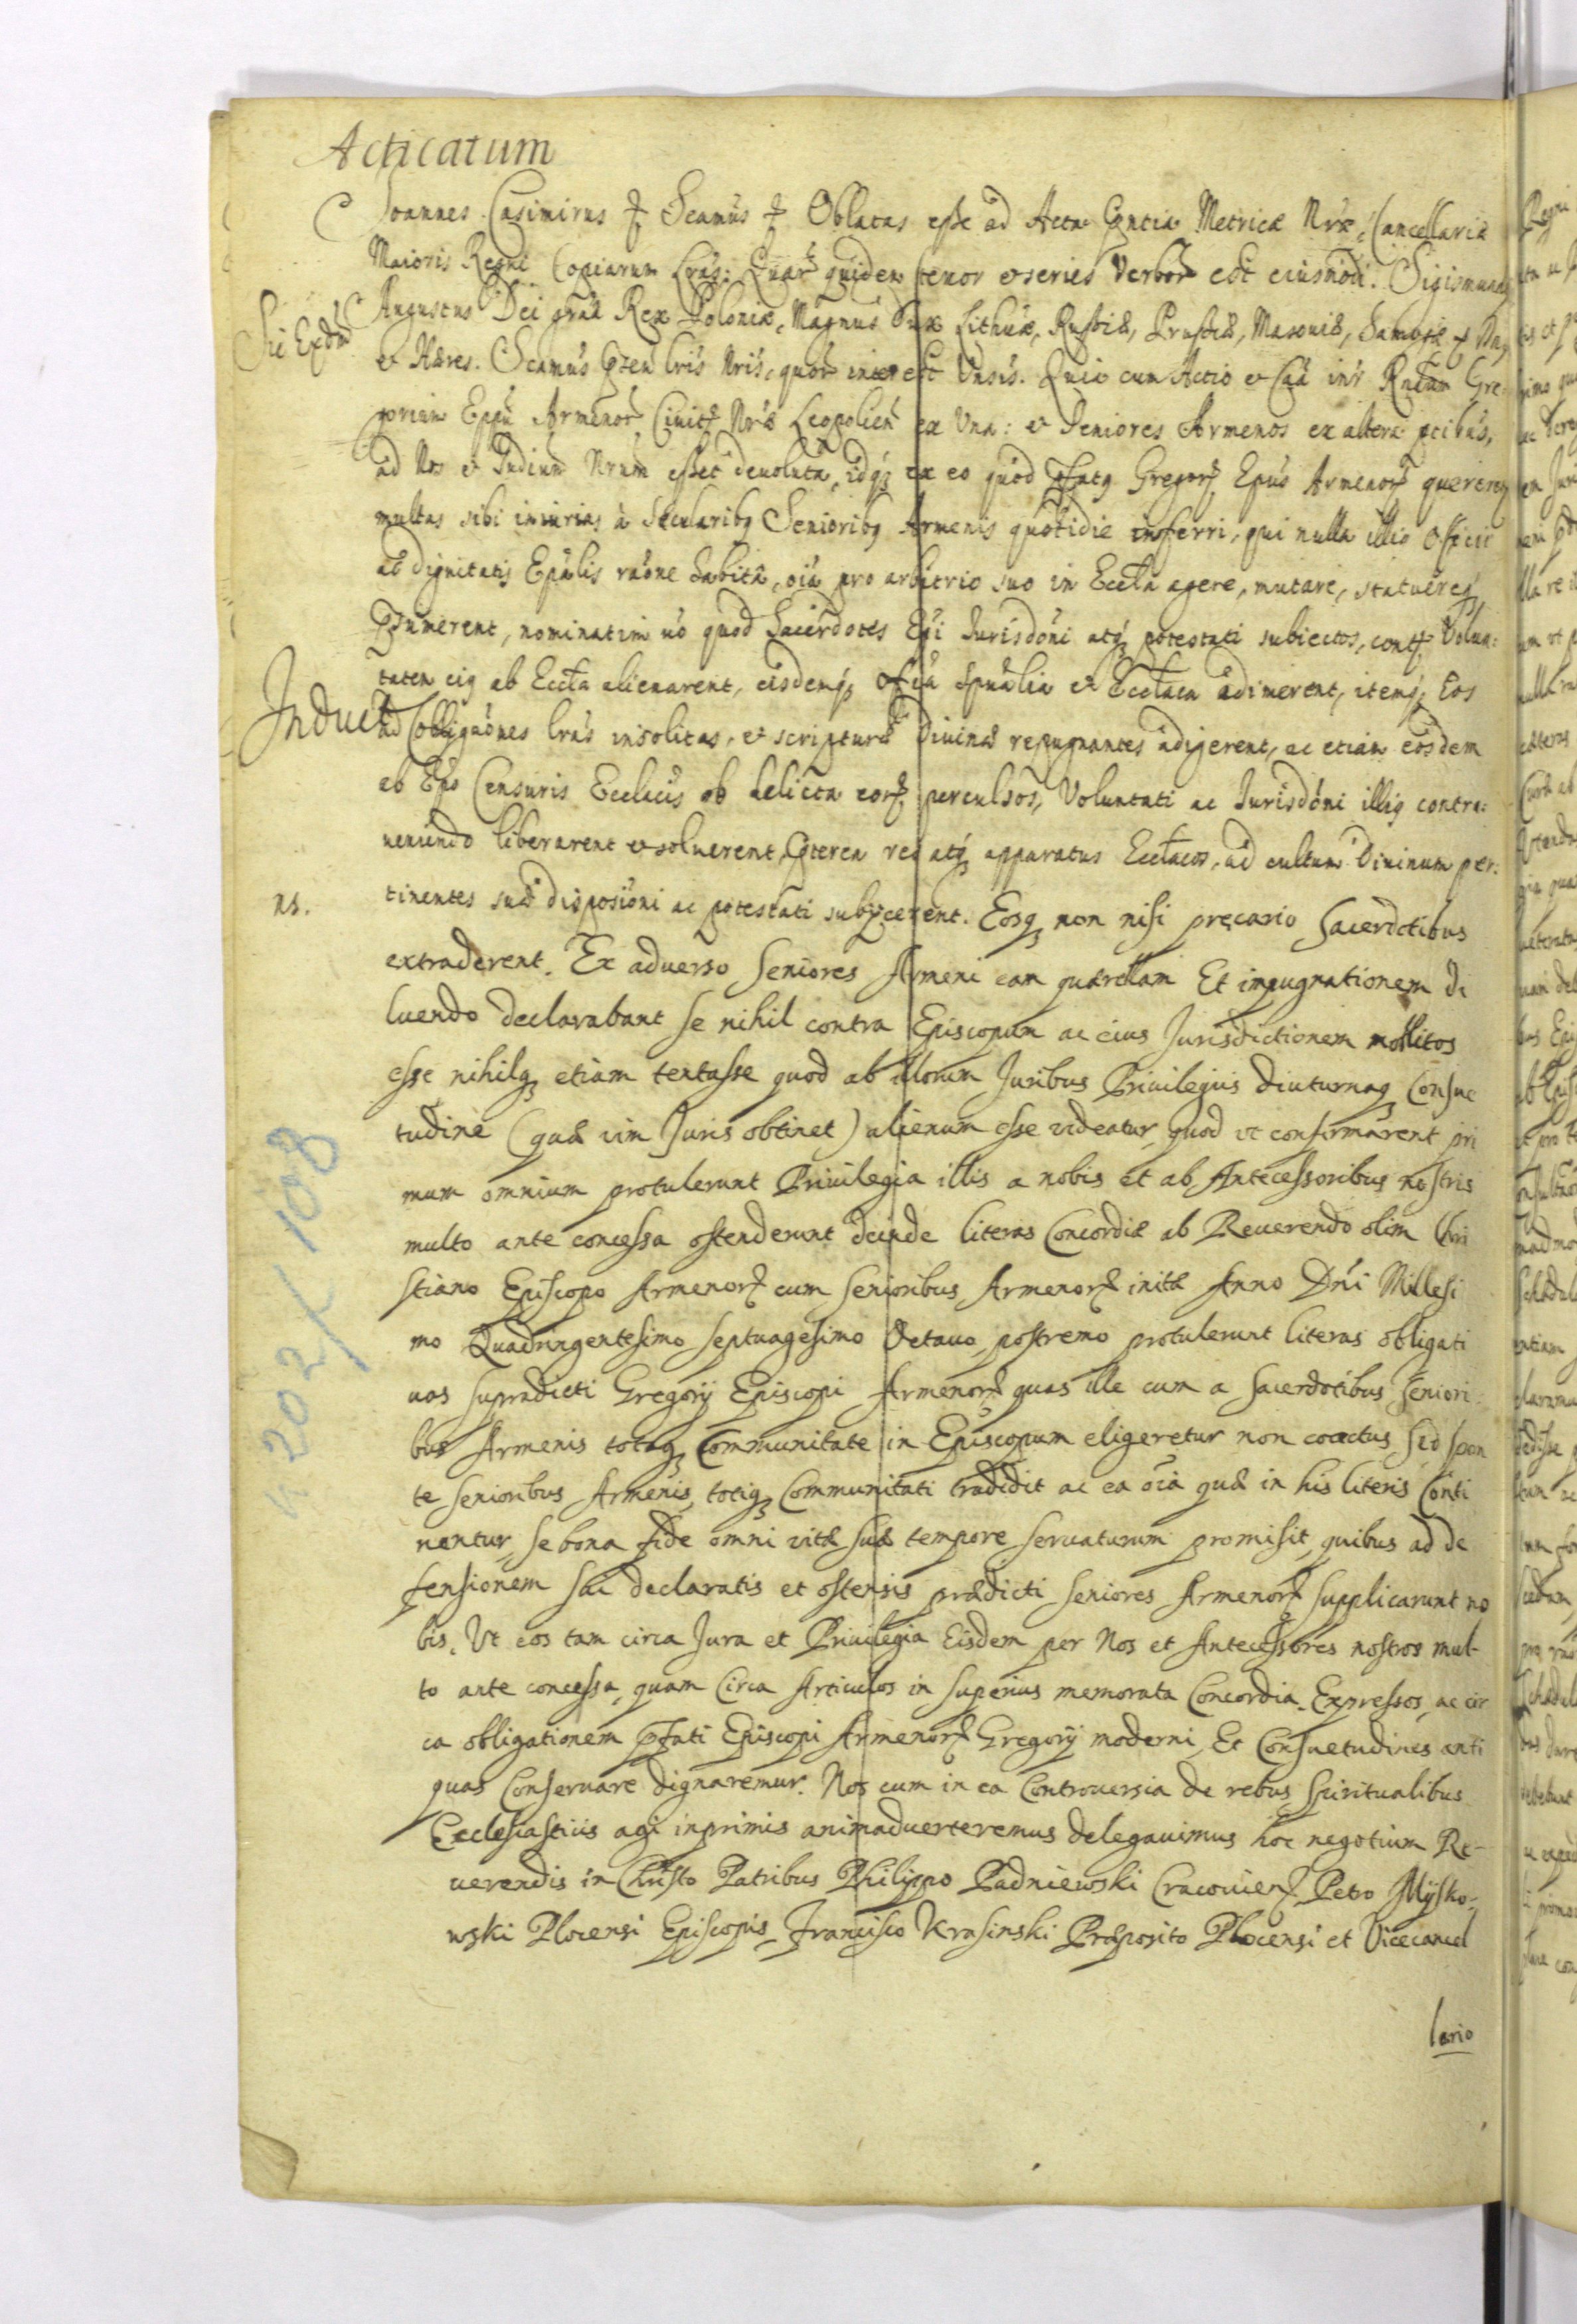 Acticatum
Joannes Casimirus Scamus Oblatas esse ad Acta Metricæ Nræ Cancellariæ
Maioris Regni Copiarum Lras: Quar quidem tenor et series Verbor est eiusmodi. Sigismundus
Augustus Dei gratia Rex Poloniæ, Magnus Dux Lithuæ, Russiæ, Prussiæ, Masouiæ, Samogæ
Sri Exdm
et Hæres. Scamus lris nris, quor interest Vnsis. Quia cum Actio et Caa intr Rndum Gre
gorium Eppu Armenor Civitt Nræ Leopolien ex Vna: et Seniores Armenos ex altera ptibus,
ad Nos et Judium Nrum esset deuoluta, idq ex eo quod Pfatq Gregorq Epus Armenor quereretr
multas sibi iniurias a Secularibq Senioribq Armenis quotidie inferri, qui nulla illiq Officii
ac dignitatis Epalis raone habita, oia pro arbitrio suo in Eccla agere, mutare, statuereq
Psumerent, nominatim uo quod Sacerdotes Epi Jurisdoni atq potestati subiectos, contr Volun:
taten eiq ab Eccla alienarent, eisdemq offia Spualia et Ecclaca adimerent, itemq Eos
Induct
ad Colligaones lras insolitas, et scripturæ Diuinæ repugnantes adigerent, ac etiam eosdem
ab Epo Censuris Ecclicis ob delicta eorq perculsos, Voluntati ac Jurisdoni illiq contra:
ueniendo liberarent et soluerent, Pterea res atq apparatus Ecclacos, ad cultum Diuinum per:
ns.
tinentes suæ disposioni ac potestati subijcerent. Eosq non nisi precario Sacerdotibus
extraderent. Ex aduerso Seniores Armeni eam quærellam Et impugnationem di
luendo declarabant se nihil contra Episcopum ac eius Jurisdictionem mollitos
esse nihilq etiam tentasse quod ab illorum Juribus Priuilegiis diuturnaq Consue
tudine (quæ vim Juris obtinet) alienum esse videatur quod vt confirmarent pri
mum omnium protulerunt Priuilegia illis a nobis et ab Antecessoribus nostris
multo ante concessa ostenderunt deinde literas Concordiæ ab Reuerendo olim Chri
stiano Episcopo Armenor cum Senioribus Armenor initæ Anno Dni Millesi
mo Quadringentesimo septuagesimo Octauo postremo protulerunt literas obligati
uas supradicti Gregorij Episcopi Armenor quas ille cum a Sacerdotibus Seniori
bus Armenis totaq Communitate in Episcopum eligeretur non coactus sed spon
te Senioribus Armenis totiq Communitati tradidit ac ea oia quæ in his literis Conti
nentur se bona fide omni vitæ suæ tempore seruaturum promisit, quibus ad de
fensionem sui declaratis et ostensis prædicti Seniores Armenor supplicarunt no
bis, Vt eos tam circa Jura et Priuilegia Eisdem per Nos et Antecessores nostros mul-
to ante concessa quam Circa Articulos in superius memorata Concordia Expressos, ac cir
ca obligationem Pfati Episcopi Armenor Gregorij moderni, Et Consuetudines anti
quas Conseruare dignaremur. Nos cum in ea Controuersia de rebus Spiritualibus
Ecclesiasticis agi inprimis animaduerteremus delegauimus hoc negotium Re-
uerendis in Christo Patribus Philippo Padniewski Cracouien Petro Mysko-
wski Plocensi Episcopis, Francisco Krasinski Præposito Plocensi et Vicecancel
lario
4202/108